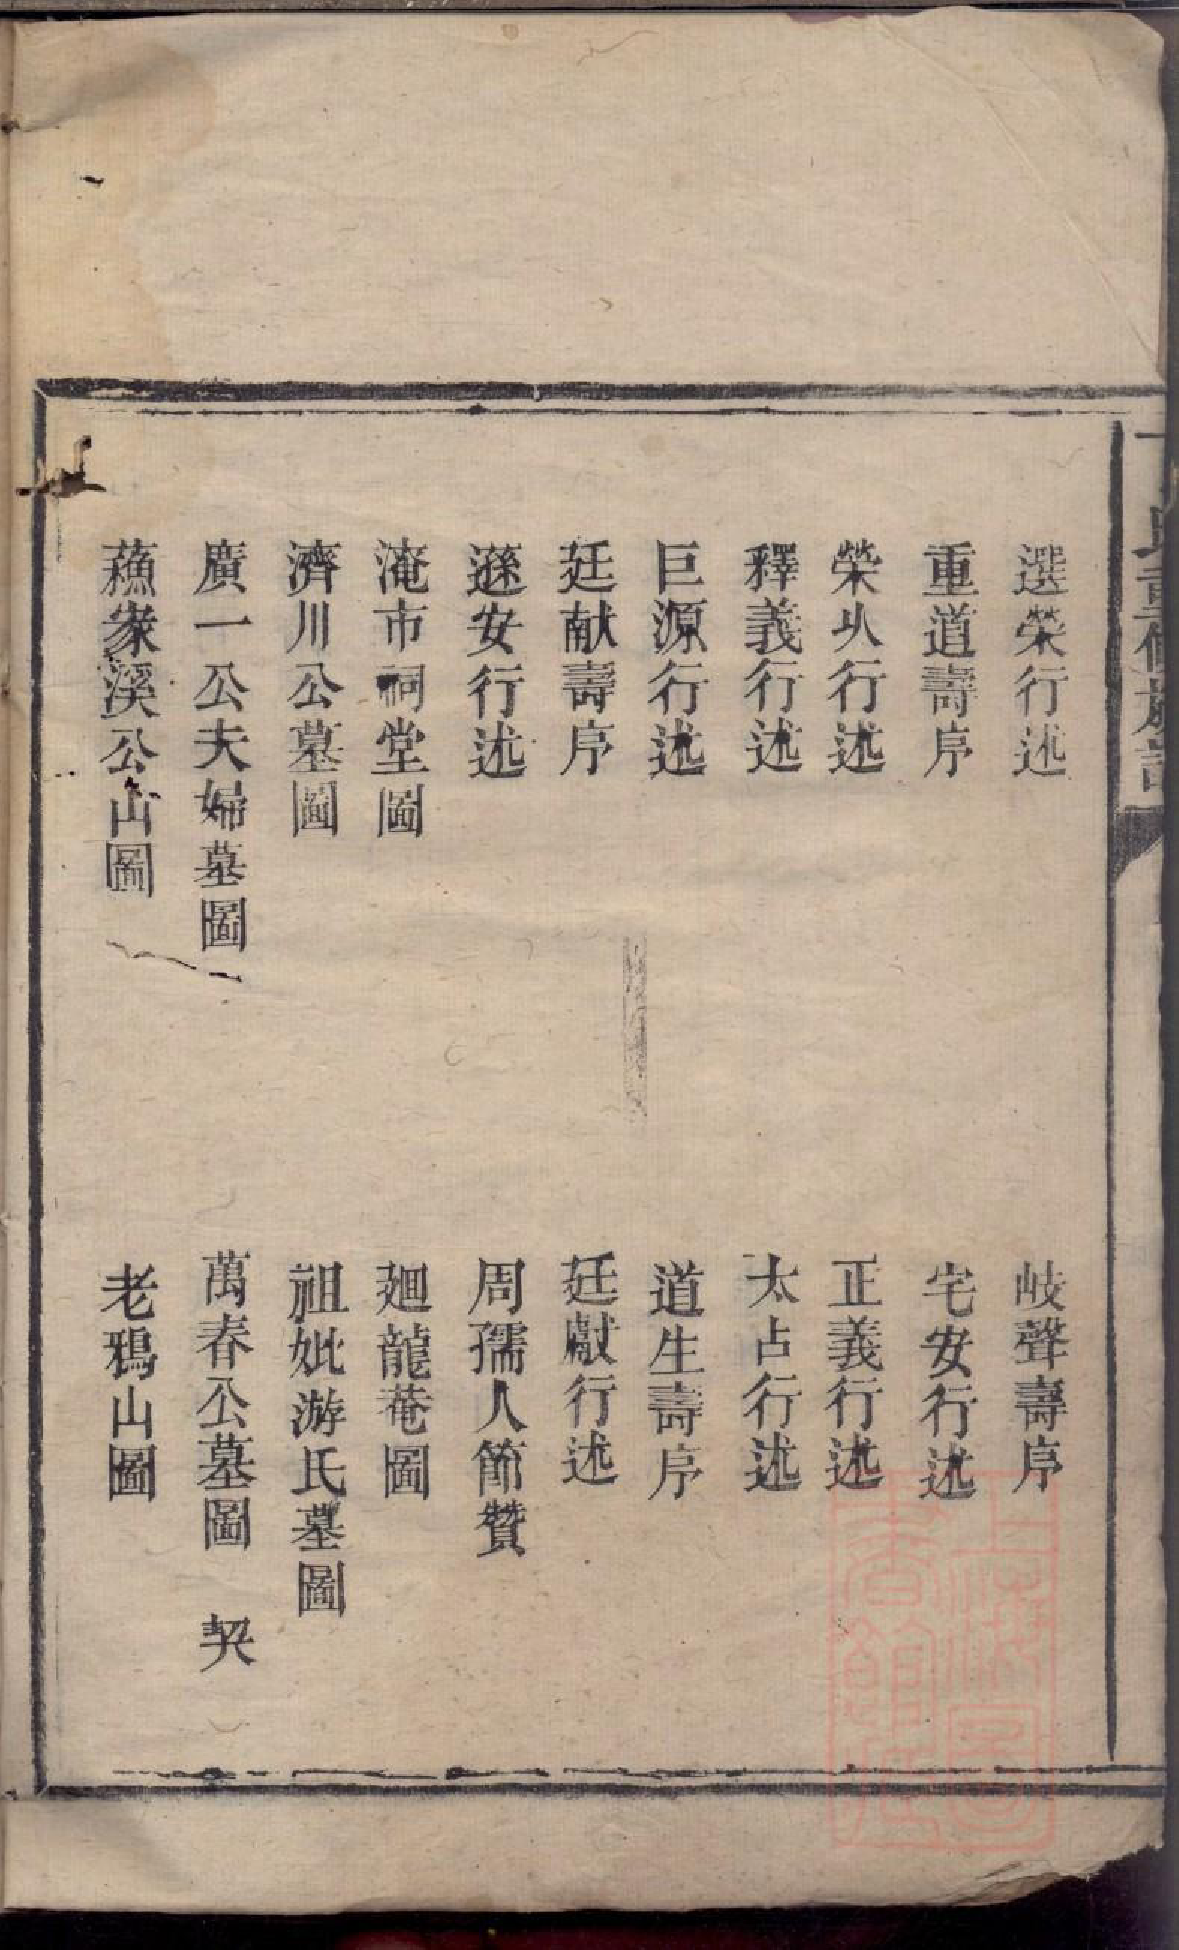 選榮行述 岐聲壽序
重道壽序 宅安行述
榮㸃行述 正義行述
釋義行述 太占行述
巨源行述 道生壽序
廷献壽序 廷獻行述
遜安行述 周孺人節贊
淹市祠堂圖 廻龍菴圖
濟川公墓圖 祖妣游氏墓圖
廣一公夫婦墓圖 萬春公墓圖 契
家溪公山圖 老鴉山圖
上海圖書館藏